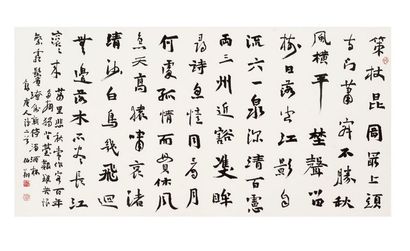 策杖昆岡最上頭
蕭寥不勝秋
風橫平楚聲留
樹日落空江影自
流六一泉深清
兩三州近豁雙眸
尋詩憶同登月
何處孤情風
急天高猿嘯哀渚
清沙白鳥飛迴
無邊落木長江
滾滾來 萬里悲秋常作客百年
多病獨登臺艱難苦恨
繁霜鬢潦倒新停濁酒杯
唐人詩二首